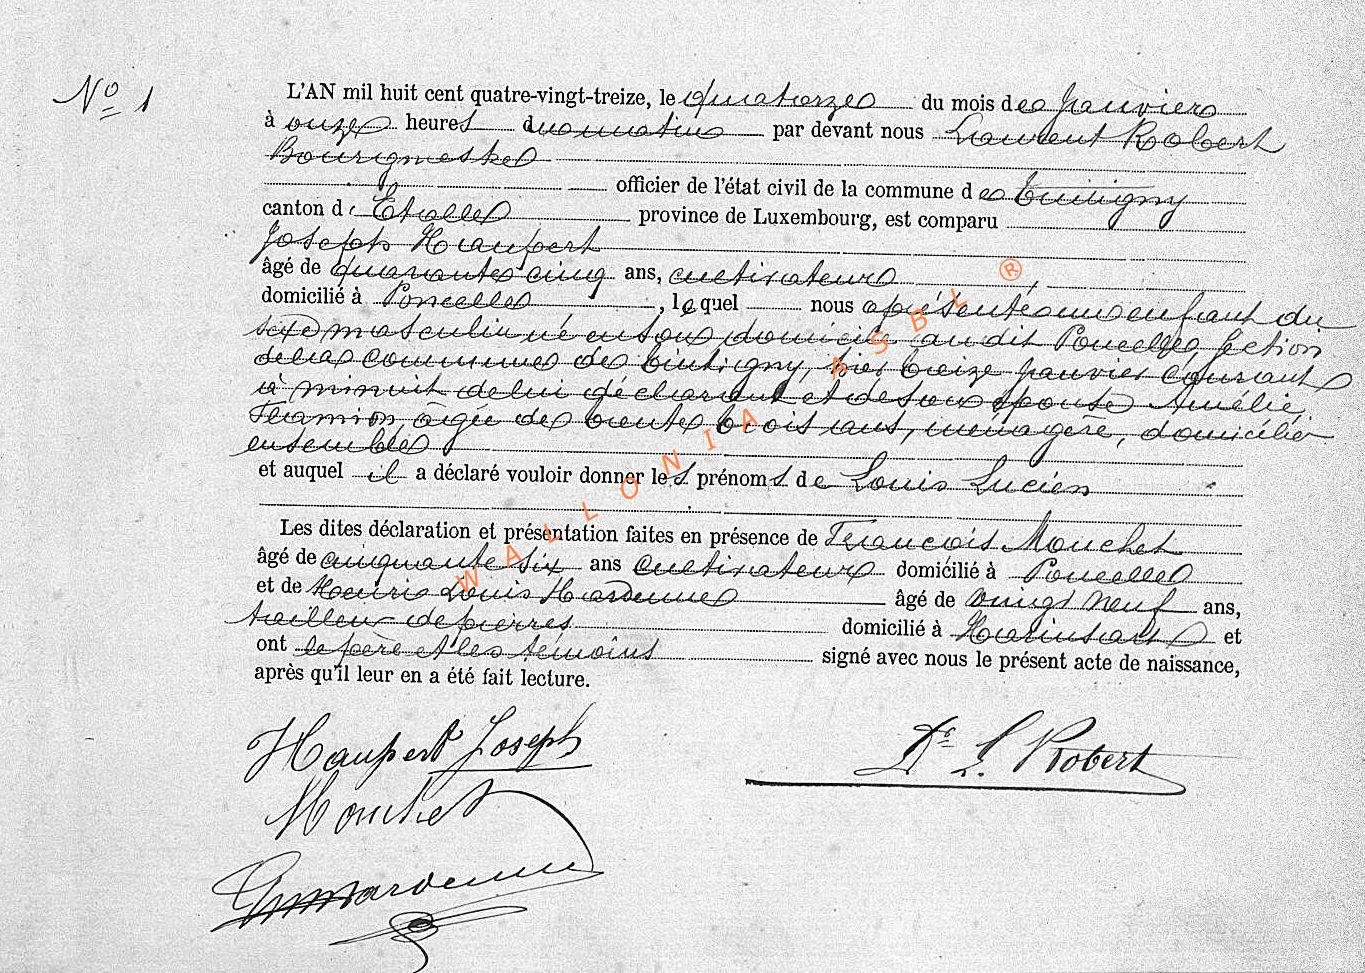 N° 1
L'AN mil huit cent quatre-vingt-treize, le quatorze du mois de Janvier
à onze heures du matin par devant nous Laurent Robert
Bourgmestre
officier de l'état civil de la commune de Tintigny
canton d'Etalle province de Luxembourg, est comparu
Joseph Haupert
âgé de quarante cinq ans, cultivateur,
domicilié à Poncelle, lequel nous a présenté un enfant du
sexe masculin né en son domicile au dit Poncelle, section
de la commune de Tintigny, hier treize Janvier courant
à minuit de lui déclarant et de son épouse Amélie
âgée de trente trois ans, ménagère, domicilié
ensemble
et auquel il a déclaré vouloir donner les prénoms de Louis Lucien
Les dites déclaration et présentation faites en présence de François Mouchet
âgé de cinquante six ans cultivateur domicilié à Poncelle
et de Henri Louis Hardenne âgé de vingt neuf ans,
tailleur de pierres domicilié à Harinsart et
ont le père et les témoins signé avec nous le présent acte de naissance,
après qu'il leur en a été fait lecture.
Haupert Joseph
Dr L. Robert
Mouchet
Hardenne
WALLONIA ASBL ®